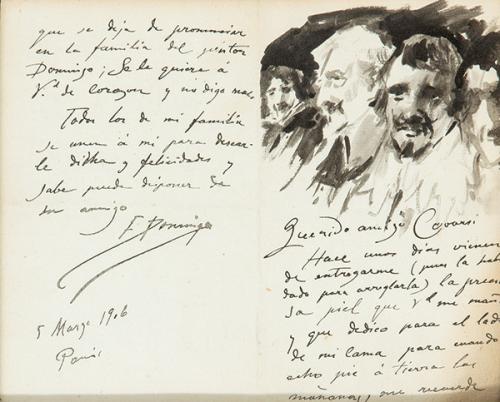 que se deja de pronunciar
en la familia del pintor
Domingo; Se le quiere á
V.d de corazon y no digo mas.
Todos los de mi familia
se unen á mi para desear-
le dicha y felicidades y
sabe puede disponer de
su amigo
F. Domingo
5 Marzo 1906
Paris
Querido amigo
Hace unos dias vienen
de entregarme (pues la hab
dado para arreglarla) la precio
sa piel que V.d me
y que dedico para el lado
de mi cama para cuando
echo pie á tierra las
mañanas, me recuerde